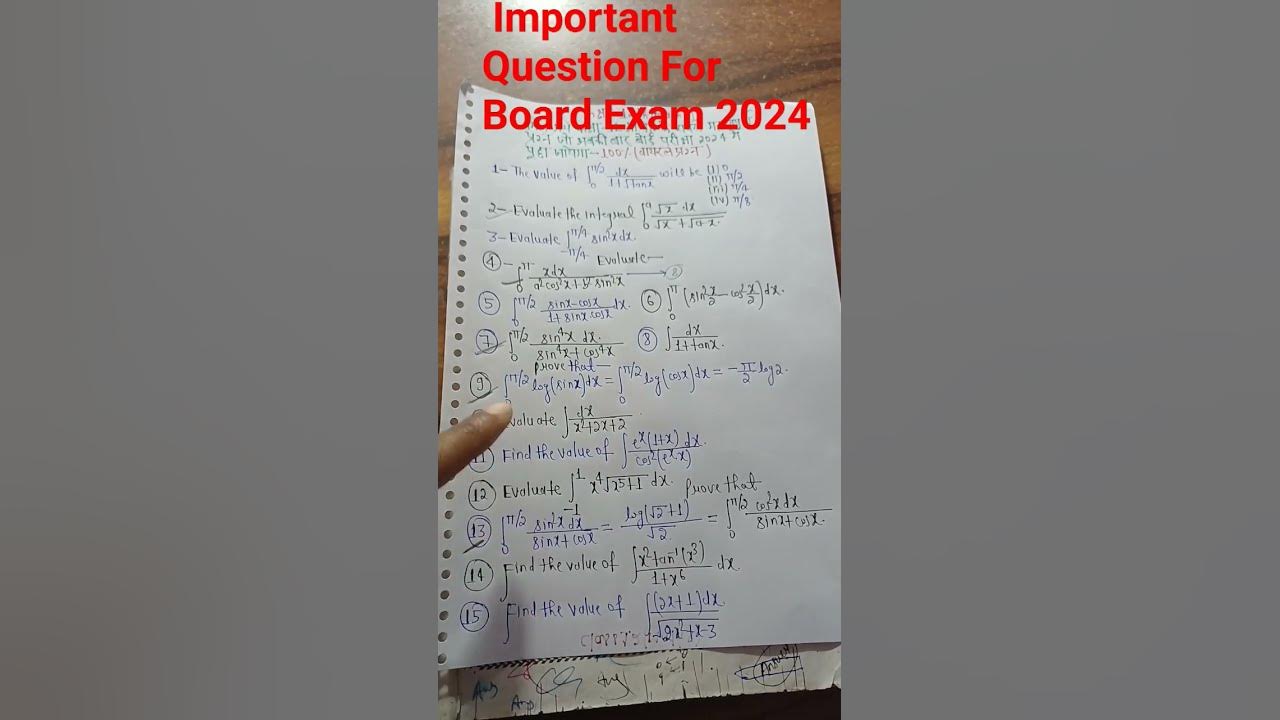 Important
Question For
Board Exam 2024
प्रश्न जो अबकी बार बोर्ड परीक्षा 2024 में
पूछा जायेगा - 100% (वायरल प्रश्न)
1- The value of ∫₀^π/2 dx/(1+√tanx) will be (i) 0
(ii) π/2
(iii) π/4
(iv) π/8
2- Evaluate the integral ∫₀^a √x dx/(√x + √a-x)
3- Evaluate ∫_-π/4^π/4 sin²x dx.
④- Evaluate-
∫₀^π x dx/(a²cos²x + b² sin²x) → ⑧
⑤ ∫₀^π/2 (sinx - cosx)/(1 + sinx cosx) dx. ⑥ ∫₀^π (sin² x/2 - cos² x/2) dx.
⑦ ∫₀^π/2 sin⁴x dx/(sin⁴x + cos⁴x) ⑧ ∫ dx/(1+tanx)
prove that-
⑨ ∫₀^π/2 log(sinx)dx = ∫₀^π/2 log(cosx)dx = -π/2 log2.
valuate ∫ dx/(x²+2x+2).
11 Find the value of ∫ e^x(1+x) dx/cos²(e^x x).
⑫ Evaluate ∫_-1^1 x⁴√(x⁵+1) dx. prove that
⑬ ∫₀^π/2 sin²x dx/(sinx+cosx) = log(√2+1)/√2 = ∫₀^π/2 cos²x dx/(sinx+cosx)
⑭ Find the value of ∫ x² tan⁻¹(x³)/(1+x⁶) dx
⑮ Find the value of ∫ (2x+1)dx/√(2x²+x-3)
Ans
Ans